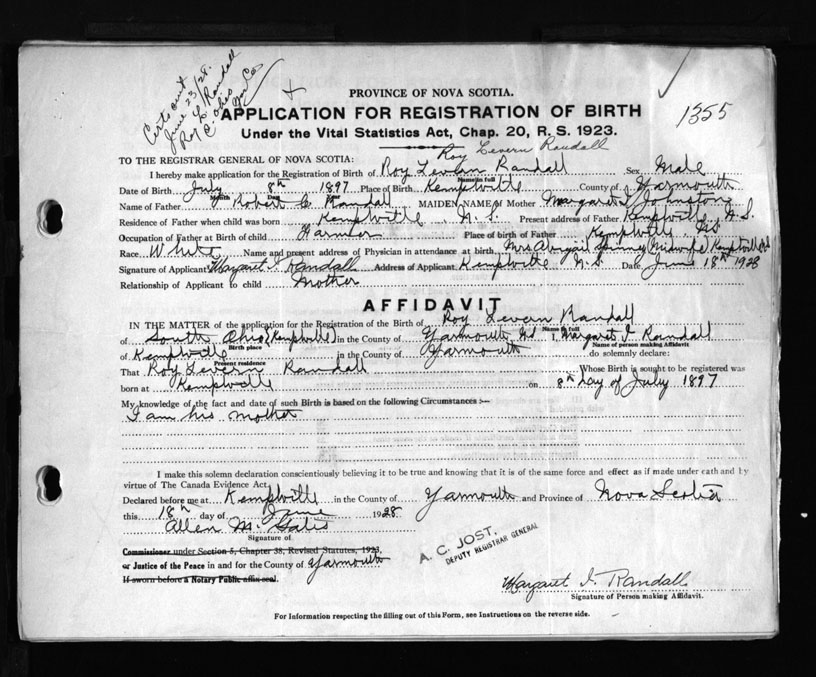 Certs out
June 23/28.
Roy L. Randall
S. Ohio
Yar Co.
+
PROVINCE OF NOVA SCOTIA.
APPLICATION FOR REGISTRATION OF BIRTH
1355
Under the Vital Statistics Act, Chap. 20, R. S. 1923.
Roy Levern Randall
TO THE REGISTRAR GENERAL OF NOVA SCOTIA:
I hereby make application for the Registration of Birth of Roy Levern Randall Sex Male
Name in full
Date of Birth July 8th 1897 Place of Birth Kemptville County of Yarmouth
Month Day Year
Name of Father Robert C Randall MAIDEN NAME of Mother Margaret J Johnston
Residence of Father when child was born Kemptville N.S. Present address of Father Kemptville, N.S.
Occupation of Father at Birth of child Farmer Place of birth of Father Kemptville, NS
Race White Name and present address of Physician in attendance at birth Mrs Abigail Spinney (Midwife) Kemptville NS
Signature of Applicant Margaret I Randall Address of Applicant Kemptville N.S. Date June 18th 1928
Relationship of Applicant to child Mother
AFFIDAVIT
IN THE MATTER of the application for the Registration of the Birth of Roy Levern Randall
Name in full
of South Ohio (Kemptville) in the County of Yarmouth NS I, Margaret I Randall
Birth place Name of person making Affidavit
of Kemptville in the County of Yarmouth do solemnly declare:
Present residence
That Roy Levern Randall Whose Birth is sought to be registered was
born at Kemptville on 8th Day of July 1897
My knowledge of the fact and date of such Birth is based on the following Circumstances :—
I am his mother
I make this solemn declaration conscientiously believing it to be true and knowing that it is of the same force and effect as if made under oath and by
virtue of The Canada Evidence Act.
Declared before me at Kemptville in the County of Yarmouth and Province of Nova Scotia
this 18th day of June 1928
Allen M. Gates
Signature of
Commissioner under Section 5, Chapter 38, Revised Statutes, 1923,
or Justice of the Peace in and for the County of Yarmouth
If sworn before a Notary Public affix seal.
A. C. JOST,
DEPUTY REGISTRAR GENERAL
Margaret I. Randall
Signature of Person making Affidavit.
For Information respecting the filling out of this Form, see Instructions on the reverse side.